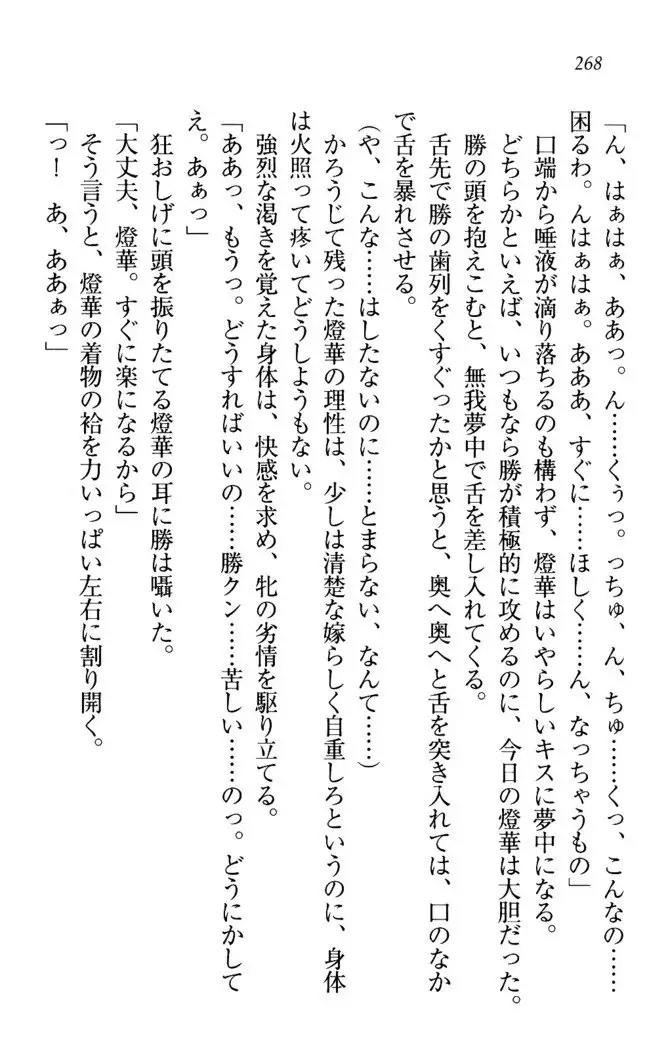 268
「ん、はぁはぁ、ああっ。ん……くぅっ。っちゅ、ん、ちゅ……くっ、こんなの……
困るわ。んはぁはぁ。あああ、すぐに……ほしく……ん、なっちゃうもの」
口端から唾液が滴り落ちるのも構わず、燈華はいやらしいキスに夢中になる。
どちらかといえば、いつもなら勝が積極的に攻めるのに、今日の燈華は大胆だった。
勝の頭を抱えこむと、無我夢中で舌を差し入れてくる。
舌先で勝の歯列をくすぐったかと思うと、奥へ奥へと舌を突き入れては、口のなか
で舌を暴れさせる。
(や、こんな……はしたないのに……とまらない、なんて……)
かろうじて残った燈華の理性は、少しは清楚な嫁らしく自重しろというのに、身体
は火照って疼いてどうしようもない。
強烈な渇きを覚えた身体は、快感を求め、牝の劣情を駆り立てる。
「ああっ、もうっ。どうすればいいの……勝クン……苦しい……のっ。どうにかして
え。あぁっ」
狂おしげに頭を振りたてる燈華の耳に勝は囁いた。
「大丈夫、燈華。すぐに楽になるから」
そう言うと、燈華の着物の袷を力いっぱい左右に割り開く。
「っ！　あ、ああぁっ」